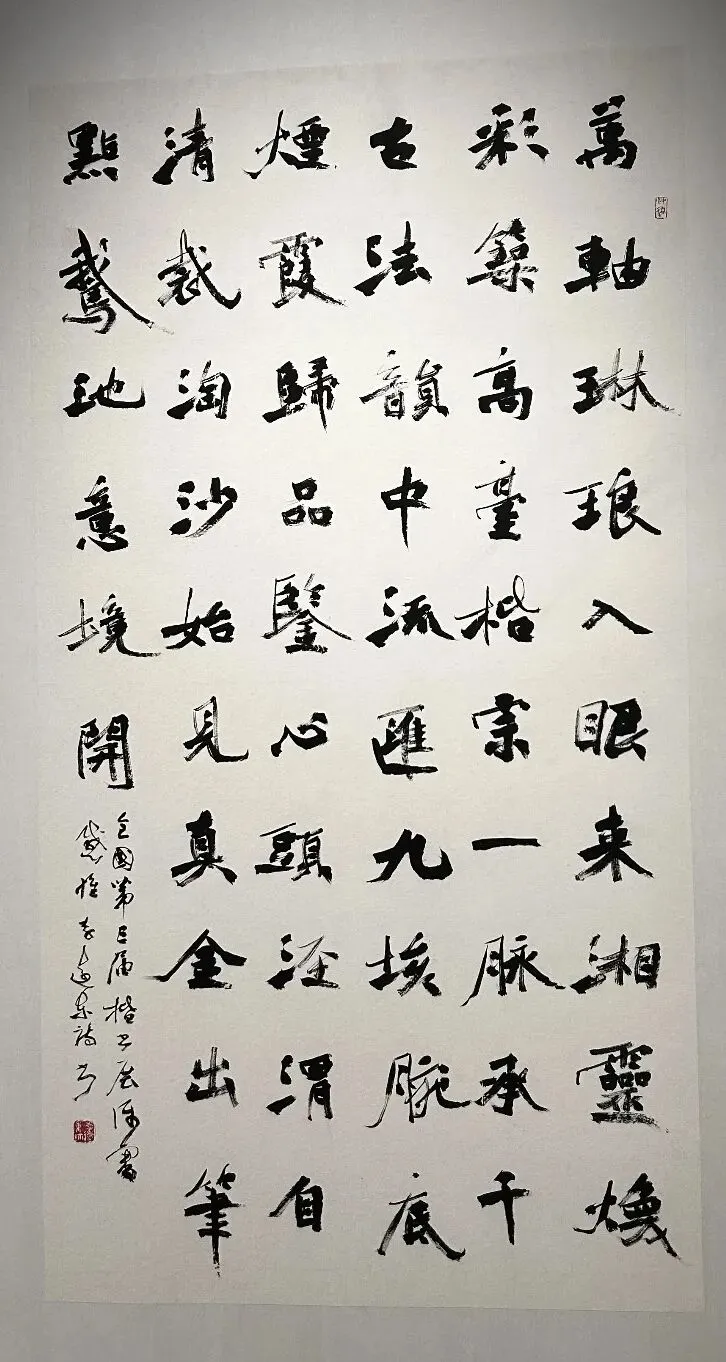 萬軸琳琅入眼来湘靈煥
彩築高臺楷宗一脉承千
古法韻中流匯九垓腕底
煙霞歸品鑒心頭涇渭自
清裁淘沙始見真金出筆
點鵝池意境開
全國第三届楷书展评審
感懷 李遠東詩